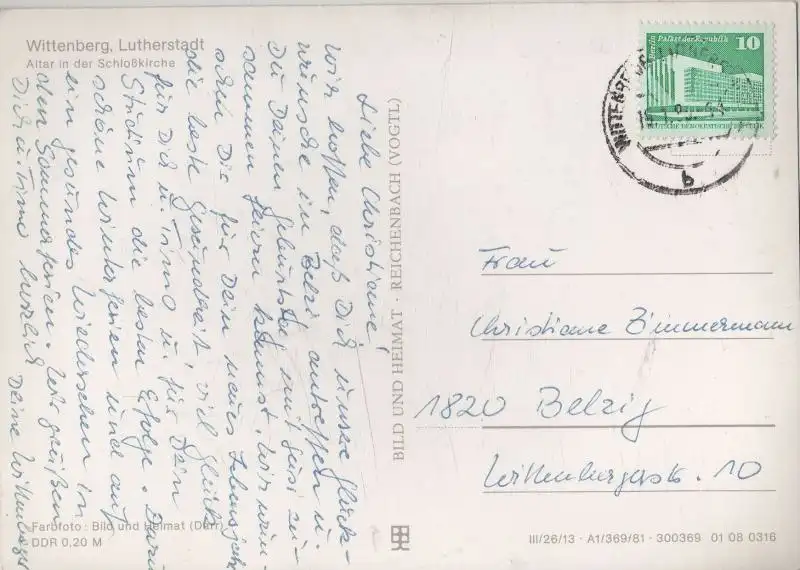 Wittenberg, Lutherstadt
Altar in der Schloßkirche
Liebe Christiane!
Wir hoffen, daß Dich unsere Glück-
wünsche in Belzig antreffen u.
Du Deinen Geburtstag mit zu-
sammen feiern kannst. Wir wün-
schen Dir für Dein neues Lebensjahr
die beste Gesundheit, viel Glück
für Dich u. Timo u. für Dein
Studium die besten Erfolge. Dazu
schöne Winterferien und auf
ein gesundes Wiedersehen in
den Sommerferien. Wir grüßen
Dich u. Timo herzlich
Deine Wittenberger
Farbfoto: Bild und Heimat (Darr)
DDR 0,20 M
BILD UND HEIMAT · REICHENBACH (VOGTL)
Berlin Palast der Republik 10
DEUTSCHE DEMOKRATISCHE REPUBLIK
WITTENBERG LUTHERSTADT
b
Frau
Christiane Zimmermann
1820 Belzig
Wittenbergerstr. 10
III/26/13 · A1/369/81 · 300369 01 08 0316